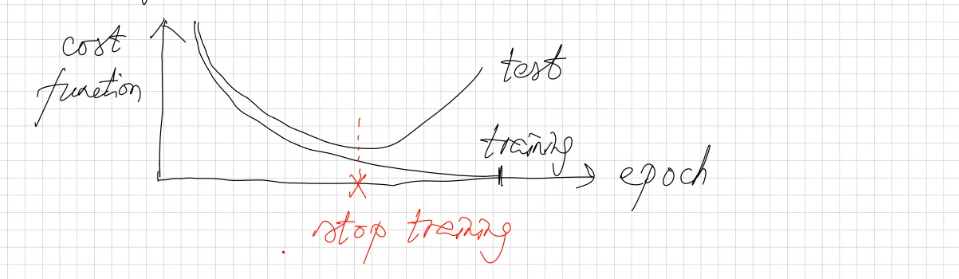 cost
function
test
training
epoch
stop training